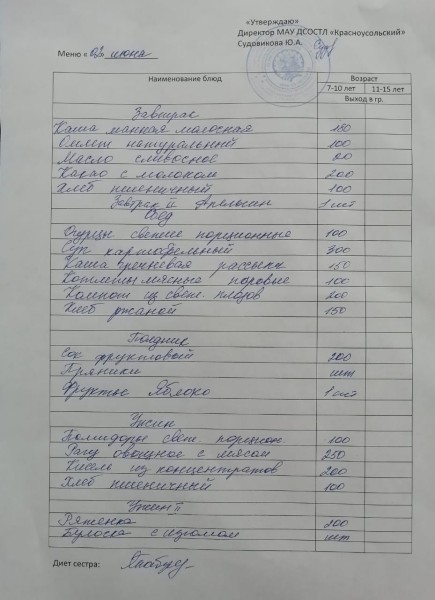 «Утверждаю»
Директор МАУ ДСОСТЛ «Красноусольский»
Судовикова Ю.А.
Меню « 02 июня
Наименование блюд Возраст
7-10 лет 11-15 лет
Выход в гр.
Завтрак
Каша манная молочная 150
Омлет натуральный 100
Масло сливочное 20
Какао с молоком 200
Хлеб пшеничный 100
Завтрак II Апельсин 1 шт
Обед
Огурцы свежие порционные 100
Суп картофельный 300
Каша гречневая рассыпч 150
Котлеты мясные паровые 100
Компот из свеж. плодов 200
Хлеб ржаной 150
Полдник
Сок фруктовый 200
Пряники шт
Фрукты Яблоко 1 шт
Ужин
Помидоры свеж. порцион. 100
Рагу овощное с мясом 250
Кисель из концентратов 200
Хлеб пшеничный 100
Ужин II
Ряженка 200
Булочка с изюмом шт
Диет сестра: